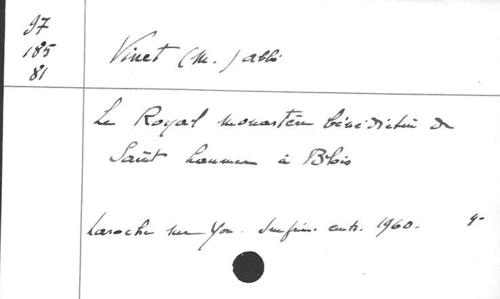 97
185
81
Vinet (M.) abbé
Le Royal monastère bénédictin de
Saint Laumer à Blois
Laroche sur Yon. Imprim. cent. 1960. 4°